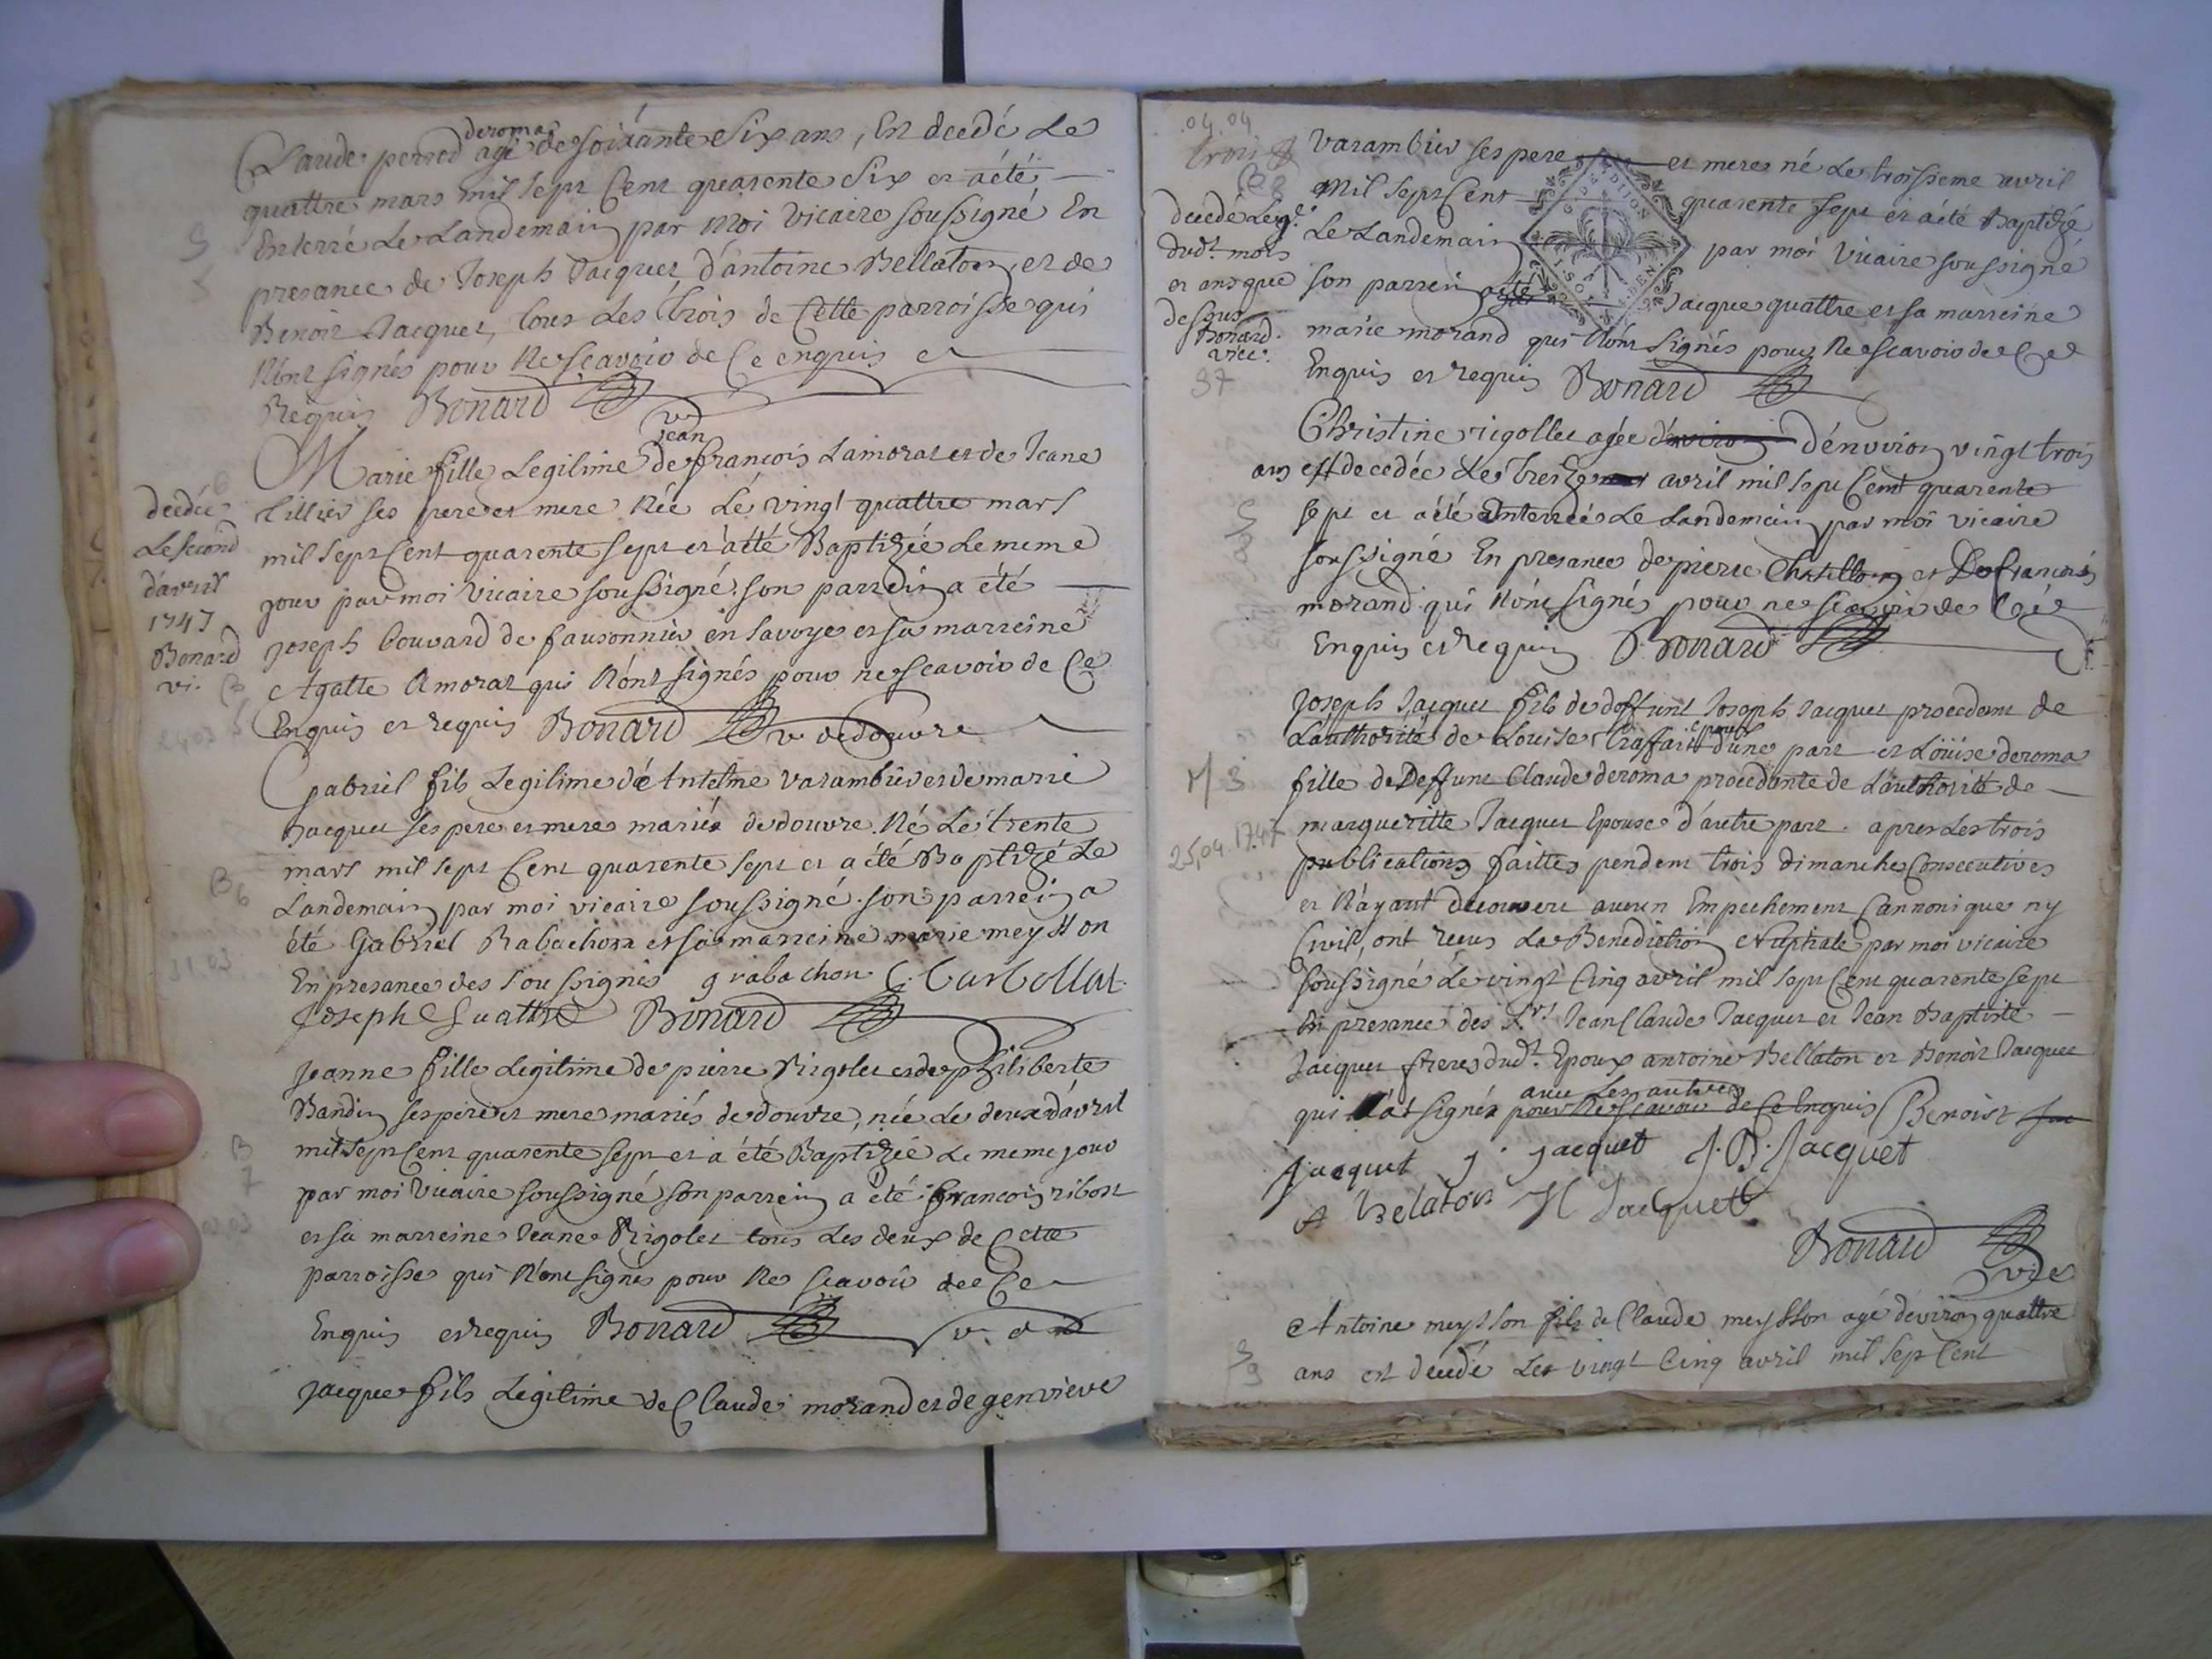 deroma
Claude perred agé de soixante Six ans, Est decedé Le
quattre mars mil sept Cent quarente Six et aété
Enterré Le Landemain par Moi Vicaire soussigné En
presance de Joseph Jacquet, d'antoine Bellaton, et de
Benoit Jacquet, tous Les trois de Cette parroisse qui
N'ont signés pour Ne scavoir de Ce enquis et
Requis Bonard
v
jean
Marie fille Legitime de françois Lamorat et de Jeane
tillier ses pere et mere Née Le vingt quattre mars
mil sept Cent quarente sept et a été Baptizée Le meme
jour par moi Vicaire soussigné. son parrein a été
joseph Couvard de fausonnier en savoye et sa marreine
Agatte Amorat qui N'ont signés pour ne scavoir de Ce
Enquis et requis Bonard v de douvre
decdée
Le second
d'avril
1747
Bonard
vi.
24.03
Gabriel fils Legitime d'Antelme Varambier et de marie
Jacquet ses pere et mere mariés de douvre. Né Le trente
mars mil sept Cent quarente sept et a été Baptizé Le
Landemain par moi vicaire soussigné. son parrein a
été Gabriel Rabachon et sa marreine marie meysson
En presance des soussignés g rabachon C. Curtellat
Joseph Quattre Bonard
B 6
31.03
Jeanne fille Legitime de pierre Rigolet et de philiberte
Bandin ses pere et mere mariés de douvre, née Le deux d'avril
mil sept Cent quarente sept et a été Baptizée Le meme jour
par moi Vicaire soussigné son parrein a été françois ribost
et sa marreine Jeane Rigolet tous Les deux de Cette
parroisse qui N'ont signés pour Ne scavoir de Ce
Enquis et requis Bonard v. d
B
7
jacque fils Legitime de Claude morand et de genvieve
.04.04
trois
B 8
Varambier ses pere et mere né Le troisieme avril
mil sept Cent quarente sept et aété Baptizé
Le Landemain par moi Vicaire soussigné
son parrein a été Jacque quattre et sa marreine
marie morand qui N'ont signés pour Ne scavoir de Ce
Enquis et requis Bonard
decedé Le 9e
dudt. mois
et an que
dessus
Bonard.
vice.
37
G DE DIJON
Christine rigollet agée d'environ d'environ vingt trois
ans est decedée Le treize avril mil sept Cent quarente
sept et a été Enterrée Le Landemain par moi vicaire
soussigné En presance de pierre Chatillon et De françois
morand qui N'ont signés pour ne scavoir de Ce
Enquis et requis Bonard
Joseph Jacquet fils de deffunt Joseph Jacquet procedant de
L'authorité de Louise traffait d'une part et Loüise deroma
fille de Deffunt Claude deroma procedante de L'authorité de
margueritte Jacquet Epouse d'autre part. apres Les trois
publications faittes pendent trois dimanches Consecutives
et N'ayant decouvert aucun Empechement Cannonique ny
Civil, ont reçus La Benediction Nuptiale par moi vicaire
soussigné Le vingt Cinq avril mil sept Cent quarente sept
En presance des Srs Jean Claude Jacquet et Jean Baptiste
Jacquet freres dudt. Epoux antoine Bellaton et Benoit Jacquet
avec Les autres
qui N'a signés pour Ne scavoir de Ce Enquis Benoist
M 3
25.04.1747
Jacquet j. jacquet J. B. Jacquet
A Belaton Jacquet
Bonard
vice
Antoine meysson fils de Claude meysson agé d'eviron quattre
ans est decedé Le vingt Cinq avril mil sept Cent
S
9